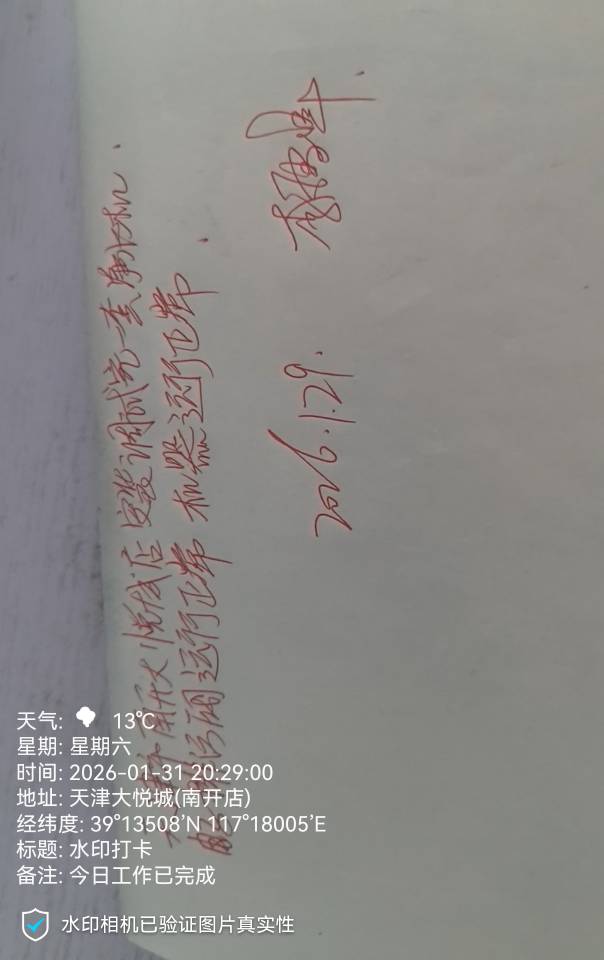 天津南开大悦城店 安装调试完一套净水机.
排污阀运行正常 机器运行正常.
2026.1.29.
天气: 13℃
星期: 星期六
时间: 2026-01-31 20:29:00
地址: 天津大悦城(南开店)
经纬度: 39°13508'N 117°18005'E
标题: 水印打卡
备注: 今日工作已完成
水印相机已验证图片真实性